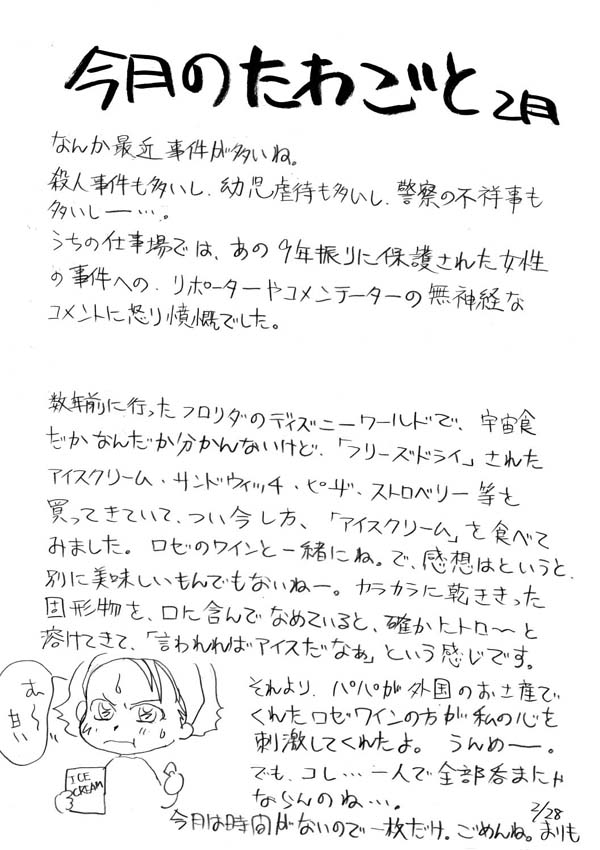 今月のたわごと 2月
なんか最近事件が多いね。
殺人事件も多いし、幼児虐待も多いし、警察の不祥事も
多いしー…。
うちの仕事場では、あの9年振りに保護された女性
の事件への、リポーターやコメンテーターの無神経な
コメントに怒り憤慨でした。
数年前に行ったフロリダのディズニーワールドで、宇宙食
だかなんだか分かんないけど、「フリーズドライ」された
アイスクリーム・サンドウィッチ・ピザ・ストロベリー等を
買ってきていて、つい今し方、「アイスクリーム」を食べて
みました。ロゼのワインと一緒にね。で、感想はというと、
別に美味しいもんでもないねー。カラカラに乾ききった
固形物を、口に含んでなめていると、確かにトロ〜と
溶けてきて、「言われればアイスだなぁ」という感じです。
む〜甘い
ICE
CREAM
それより、パパが外国のお土産で
くれたロゼワインの方が私の心を
刺激してくれたよ。うんめー。
でも、コレ…一人で全部呑まにゃ
ならんのね…。
2/28
今月は時間がないので一枚だけ。ごめんね。まりも